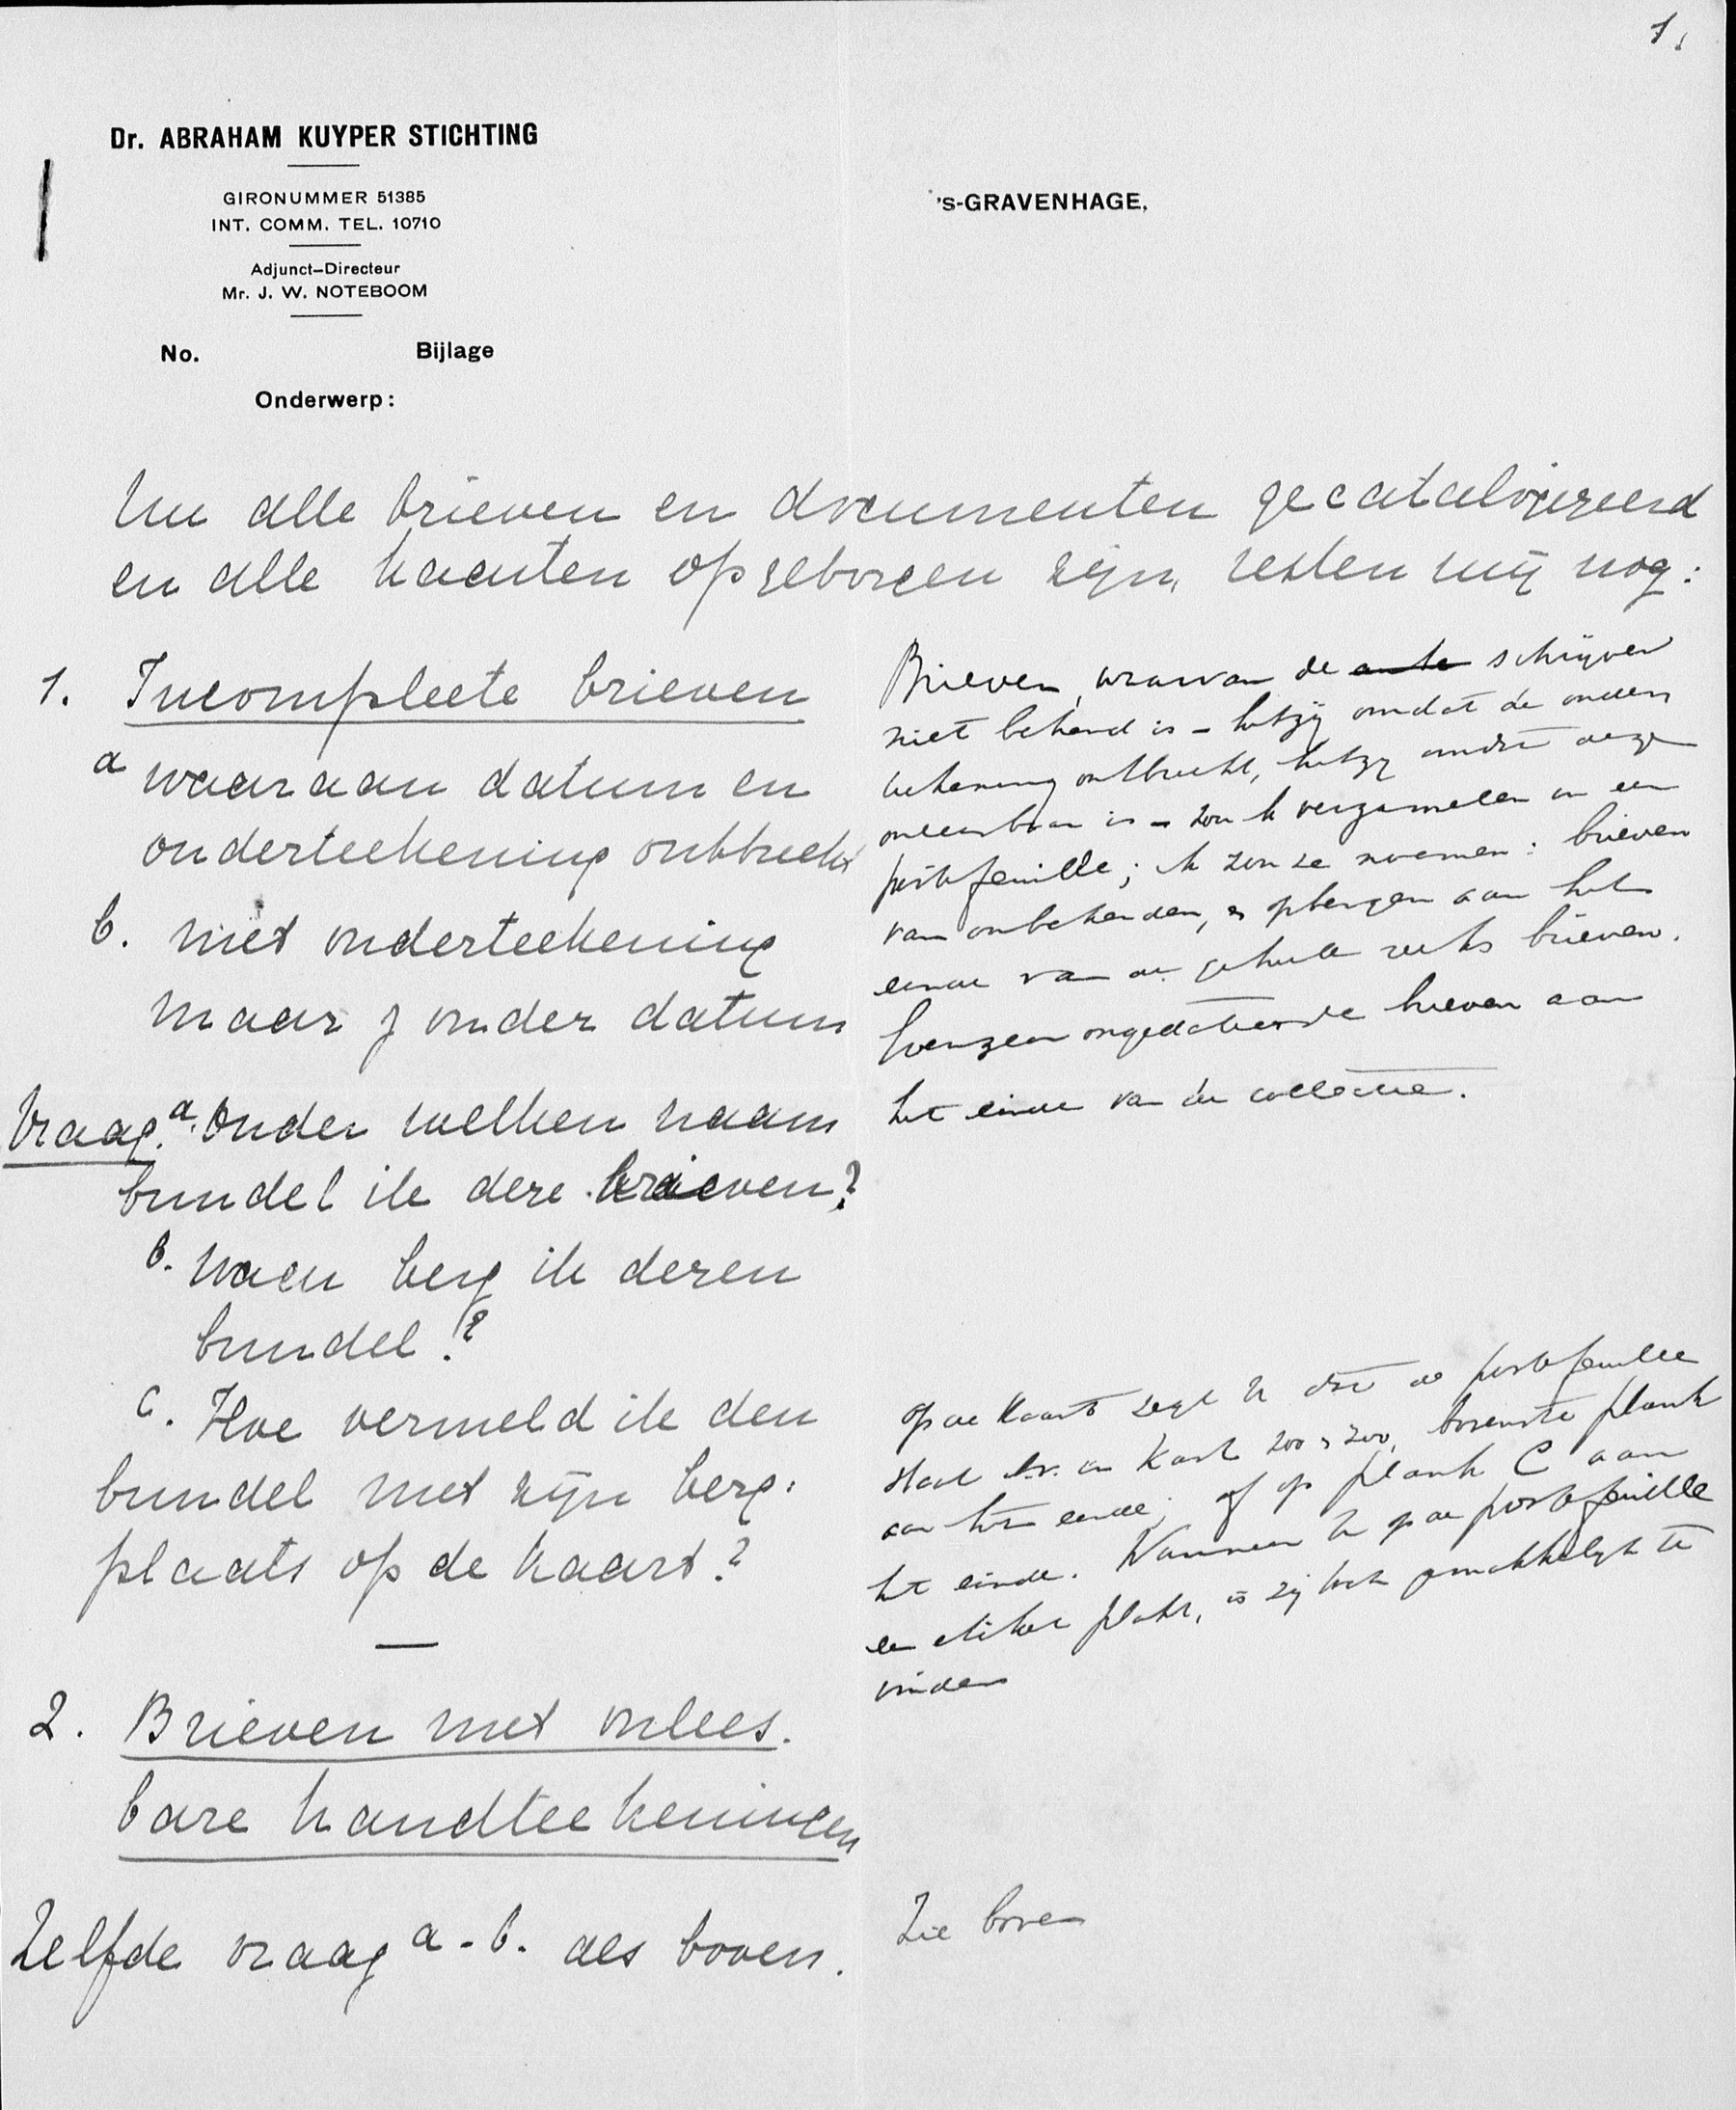 1.
Dr. ABRAHAM KUYPER STICHTING
GIRONUMMER 51385
INT. COMM. TEL. 10710
Adjunct–Directeur
Mr. J. W. NOTEBOOM
No. Bijlage
Onderwerp:
's-GRAVENHAGE,
Nu alle brieven en documenten gecatalogiseerd
en alle kaarten opgeborgen zijn, resten mij nog:
1. Incompleete brieven
a waaraan datum en
onderteekening ontbreekt
b. met onderteekening
maar zonder datum
Vraag. a. Onder welken naam
bundel ik deze brieven?
b. Waar berg ik dezen
bundel?
c. Hoe vermeld ik den
bundel met zijn berg-
plaats op de kaart?
2. Brieven met onlees-
bare handteekeningen
Zelfde vraag a-b. als boven.
Brieven, waarvan de schrijver
niet bekend is - hetzij omdat de onder
teekening ontbreekt, hetzij omdat deze
onleesbaar is - zou ik verzamelen in een
portefeuille; ik zou ze noemen: brieven
van onbekenden, en opbergen aan het
einde van de geheele reeks brieven.
Evenzeer ongedateerde brieven aan
het einde van de collectie.
Op de kaart zegt U dat de portefeuille
staat b.v. in Kast zoo en zoo, bovenste plank
aan het einde; of op plank C aan
het einde. Wanneer U op de portefeuille
een etiket plakt, is zij toch gemakkelijk te
vinden
Zie boven